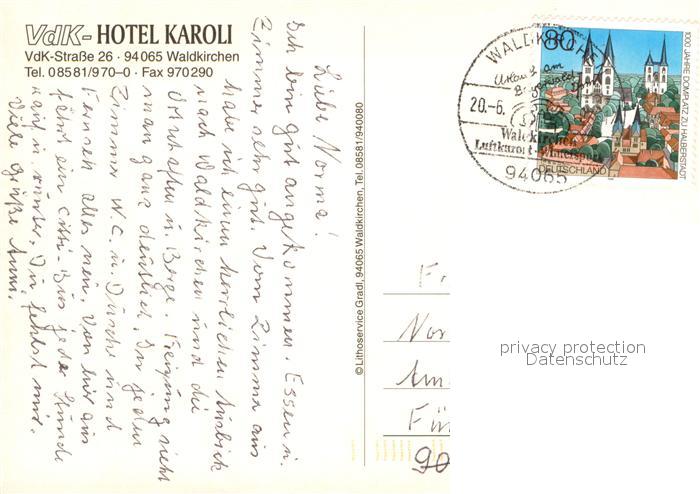 VdK- HOTEL KAROLI
VdK-Straße 26 · 94065 Waldkirchen
Tel. 08581/970–0 · Fax 970290
Liebe Norma!
Ich bin gut angekommen. Essen u.
Zimmer sehr gut. Vom Zimmer aus
habe ich einen herrlichen Ausblick
nach Waldkirchen und die
Ortschaften u. Berge. Freyung sieht
man ganz deutlich. In jedem
Zimmer W.C. u. Dusche und
Fernseh alles neu. Von hier aus
fährt ein Citti-Bus jede Stunde
rauf u. runter. Du fehlst mir.
Viele Grüße Anni.
© Lithoservice Gradl, 94065 Waldkirchen, Tel. 08581/940080
WALDKIRCHEN
Urlaub am
20.-6.
Waldkirchen
Luftkurort · Wintersport
94065
80
1000 JAHRE DOMPLATZ ZU HALBERSTADT
DEUTSCHLAND
F
Nor
Am
Für
90
privacy protection
Datenschutz